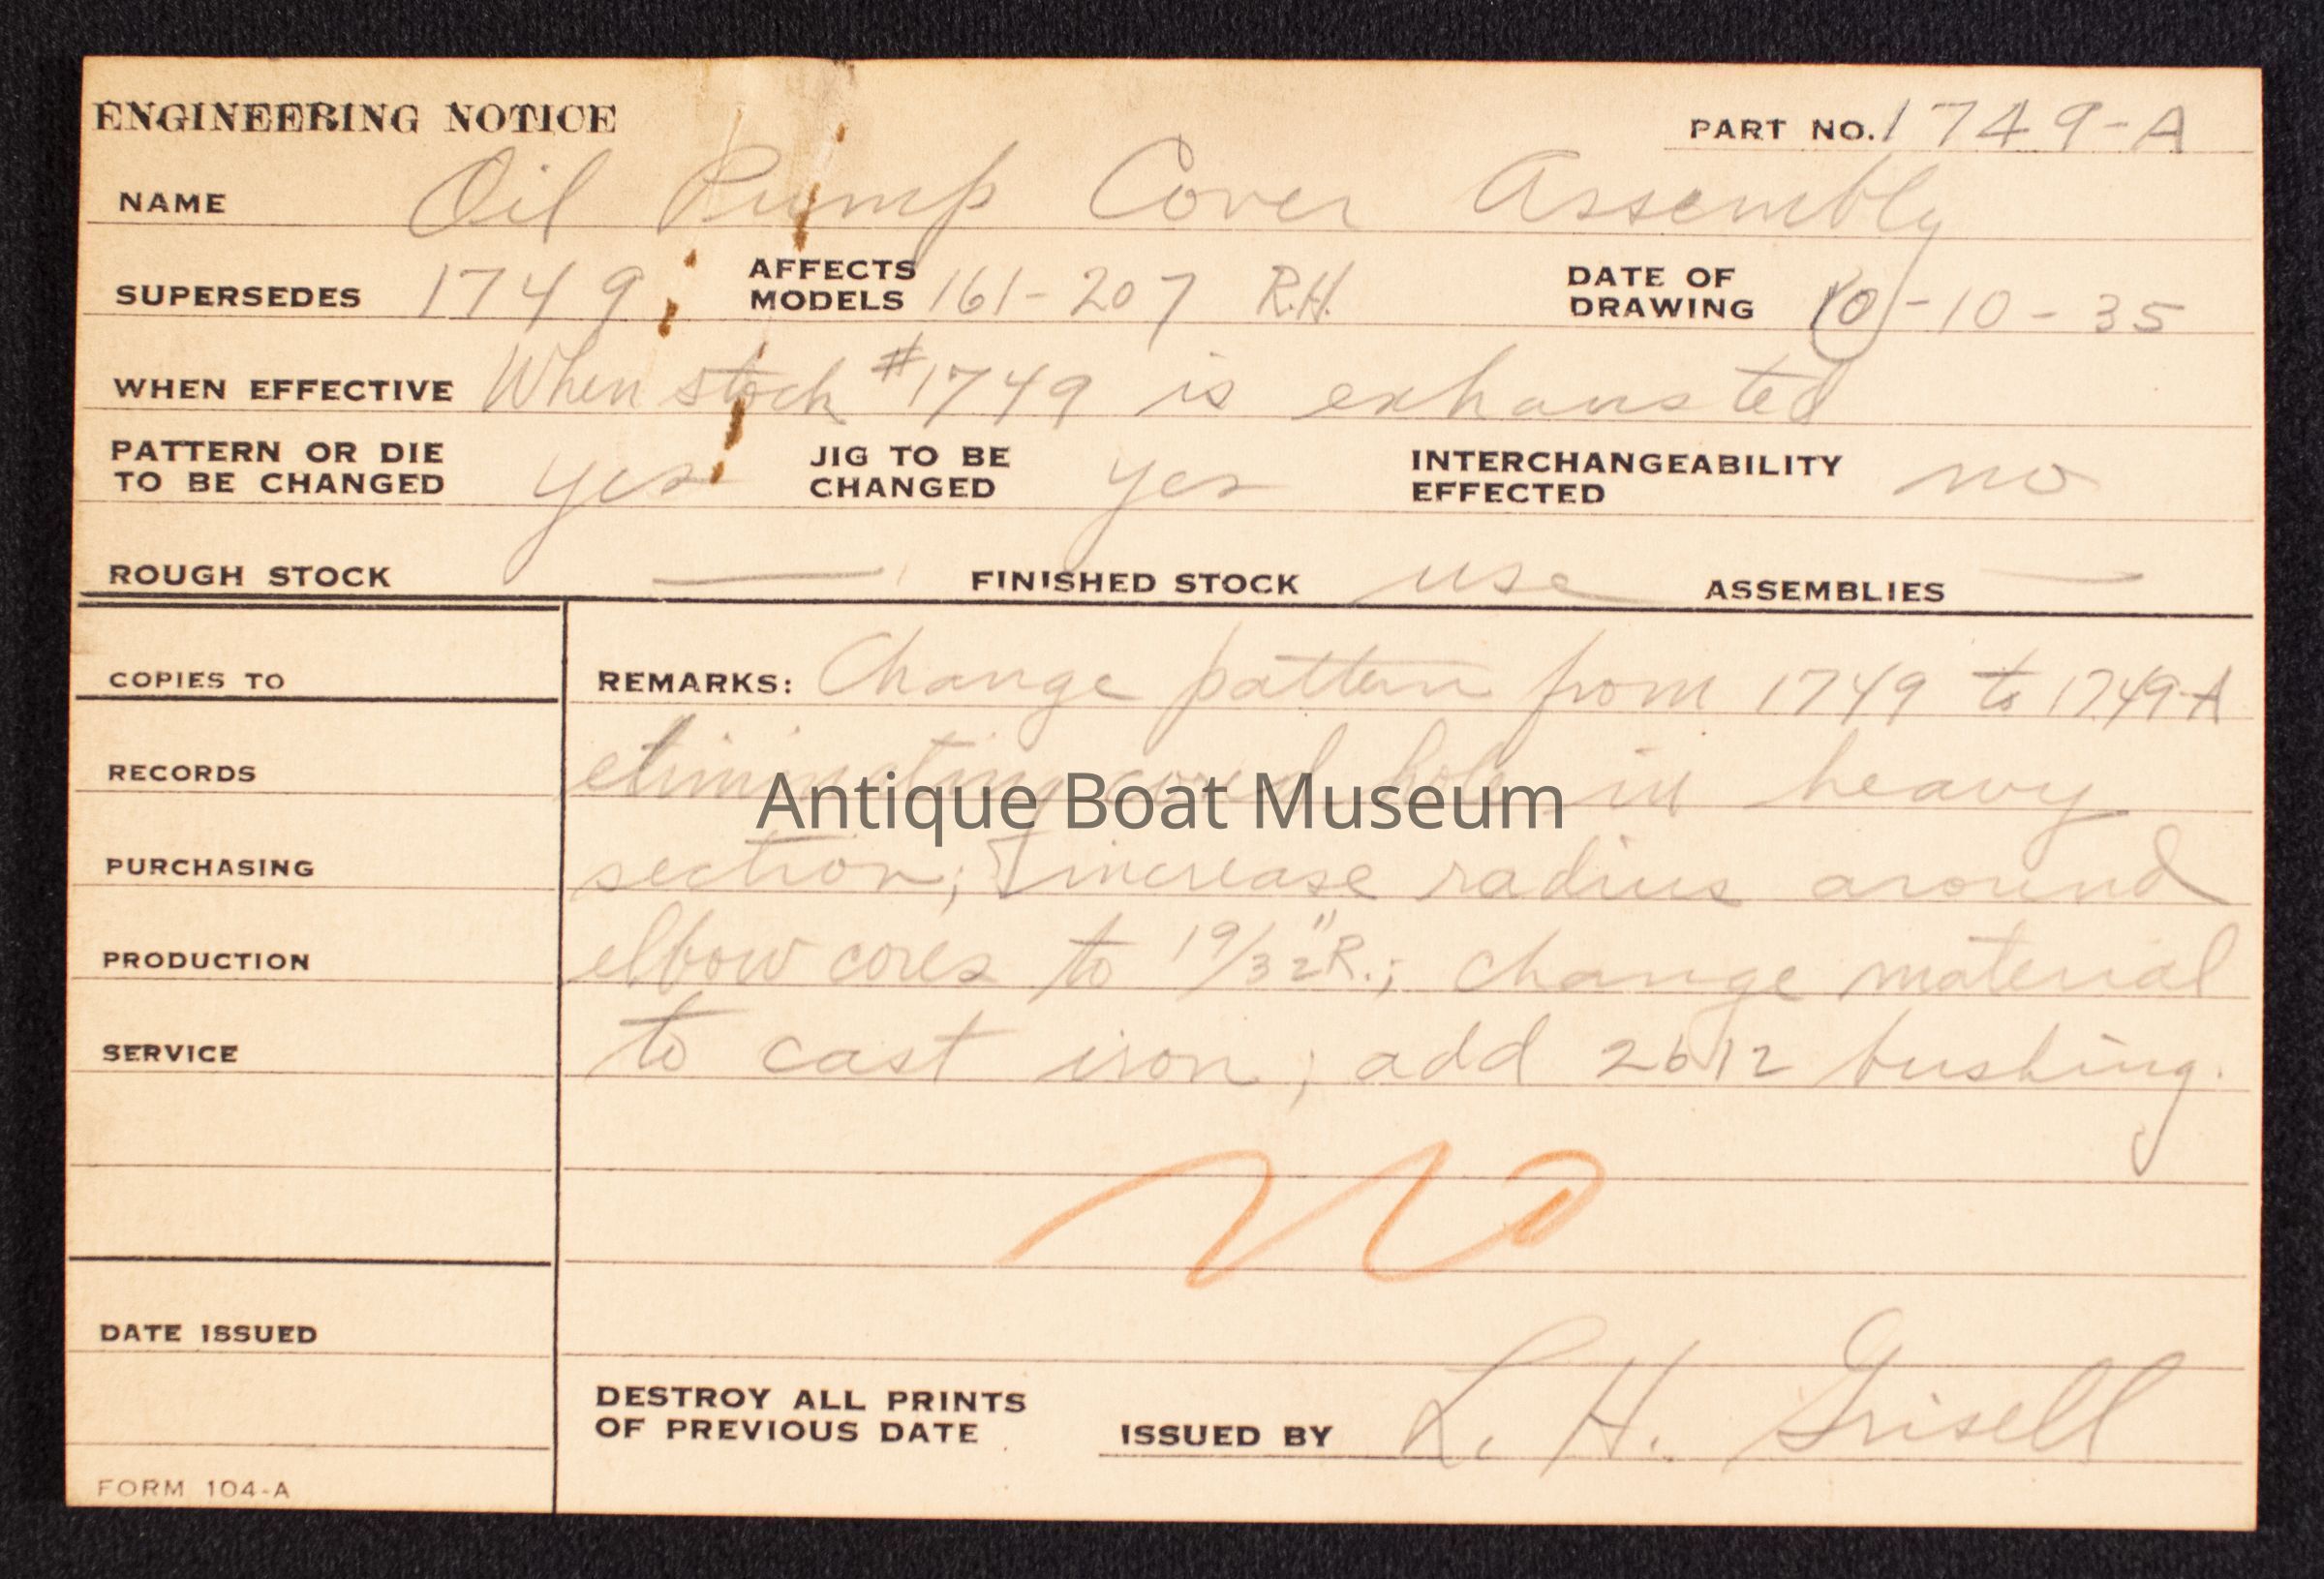 ENGINEERING NOTICE PART NO. 1749-A
NAME Oil Pump Cover Assembly
SUPERSEDES 1749 AFFECTS MODELS 161-207 R.H. DATE OF DRAWING 10-10-35
WHEN EFFECTIVE When stock #1749 is exhausted
PATTERN OR DIE TO BE CHANGED yes JIG TO BE CHANGED yes INTERCHANGEABILITY EFFECTED no
ROUGH STOCK — FINISHED STOCK use ASSEMBLIES —
COPIES TO
RECORDS
PURCHASING
PRODUCTION
SERVICE
DATE ISSUED
FORM 104-A
REMARKS: Change pattern from 1749 to 1749-A
eliminating cored hole in heavy
section; increase radius around
elbow cores to 19/32" R.; change material
to cast iron; add 2612 bushing.
DESTROY ALL PRINTS
OF PREVIOUS DATE
ISSUED BY L. H. Grisell
Antique Boat Museum